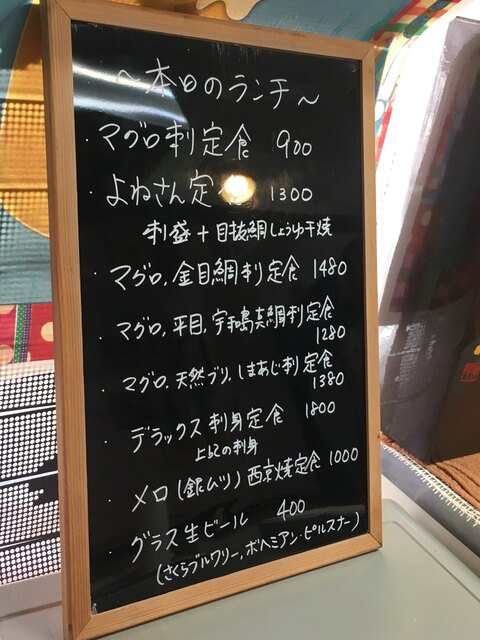 ～本日のランチ～
・マグロ刺定食 900
・よねさん定食 1300
刺盛＋目抜鯛しょうゆ干焼
・マグロ,金目鯛刺定食 1480
・マグロ,平目,宇和島真鯛刺定食
1280
・マグロ,天然ブリ,しまあじ刺定食
1380
・デラックス刺身定食 1800
上記の刺身
・メロ(銀ムツ)西京焼定食 1000
・グラス生ビール 400
(さくらブルワリー,ボヘミアン・ピルスナー)